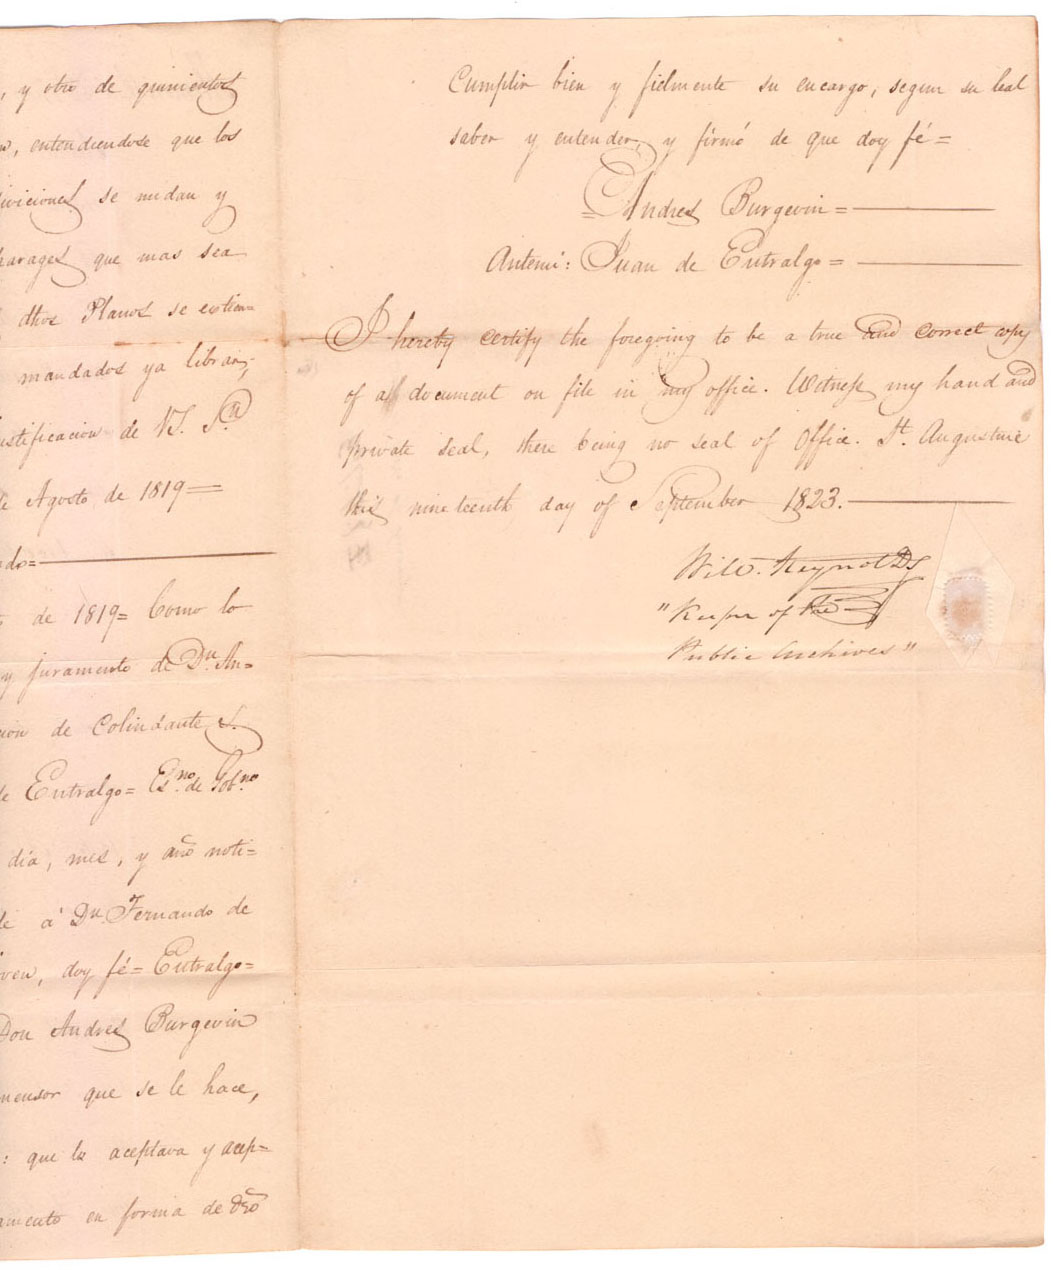 , y otro de quinientos
, entendiendose que los
iviciones se mudan y
parages que mas sea
dhos Planos se estien=
mandados ya librar,
ustificacion de V.S. Sn.
de Agosto de 1819=
do=
de 1819= Como lo
y juramento de Dn. An=
cion de Colindantes.
de Entralgo= Esno. de Gobno.
dia, mes, y año noti=
é á Dn. Fernando de
ven, doy fé= Entralgo=
Don Andres Burgevin
mensor que se le hace,
: que la aceptava y acep=
amento en forma de dro
Cumplir bien y fielmente su encargo, segun su leal
saber y entender, y firmó de que doy fé=
=Andres Burgevin=
Antemi: Juan de Entralgo=
I hereby certify the foregoing to be a true and correct copy
of a document on file in my office. Witness my hand and
private seal, there being no seal of Office. St. Augustine
this nineteenth day of September 1823.
Wil. Reynolds
"Keeper of the
Public Archives"